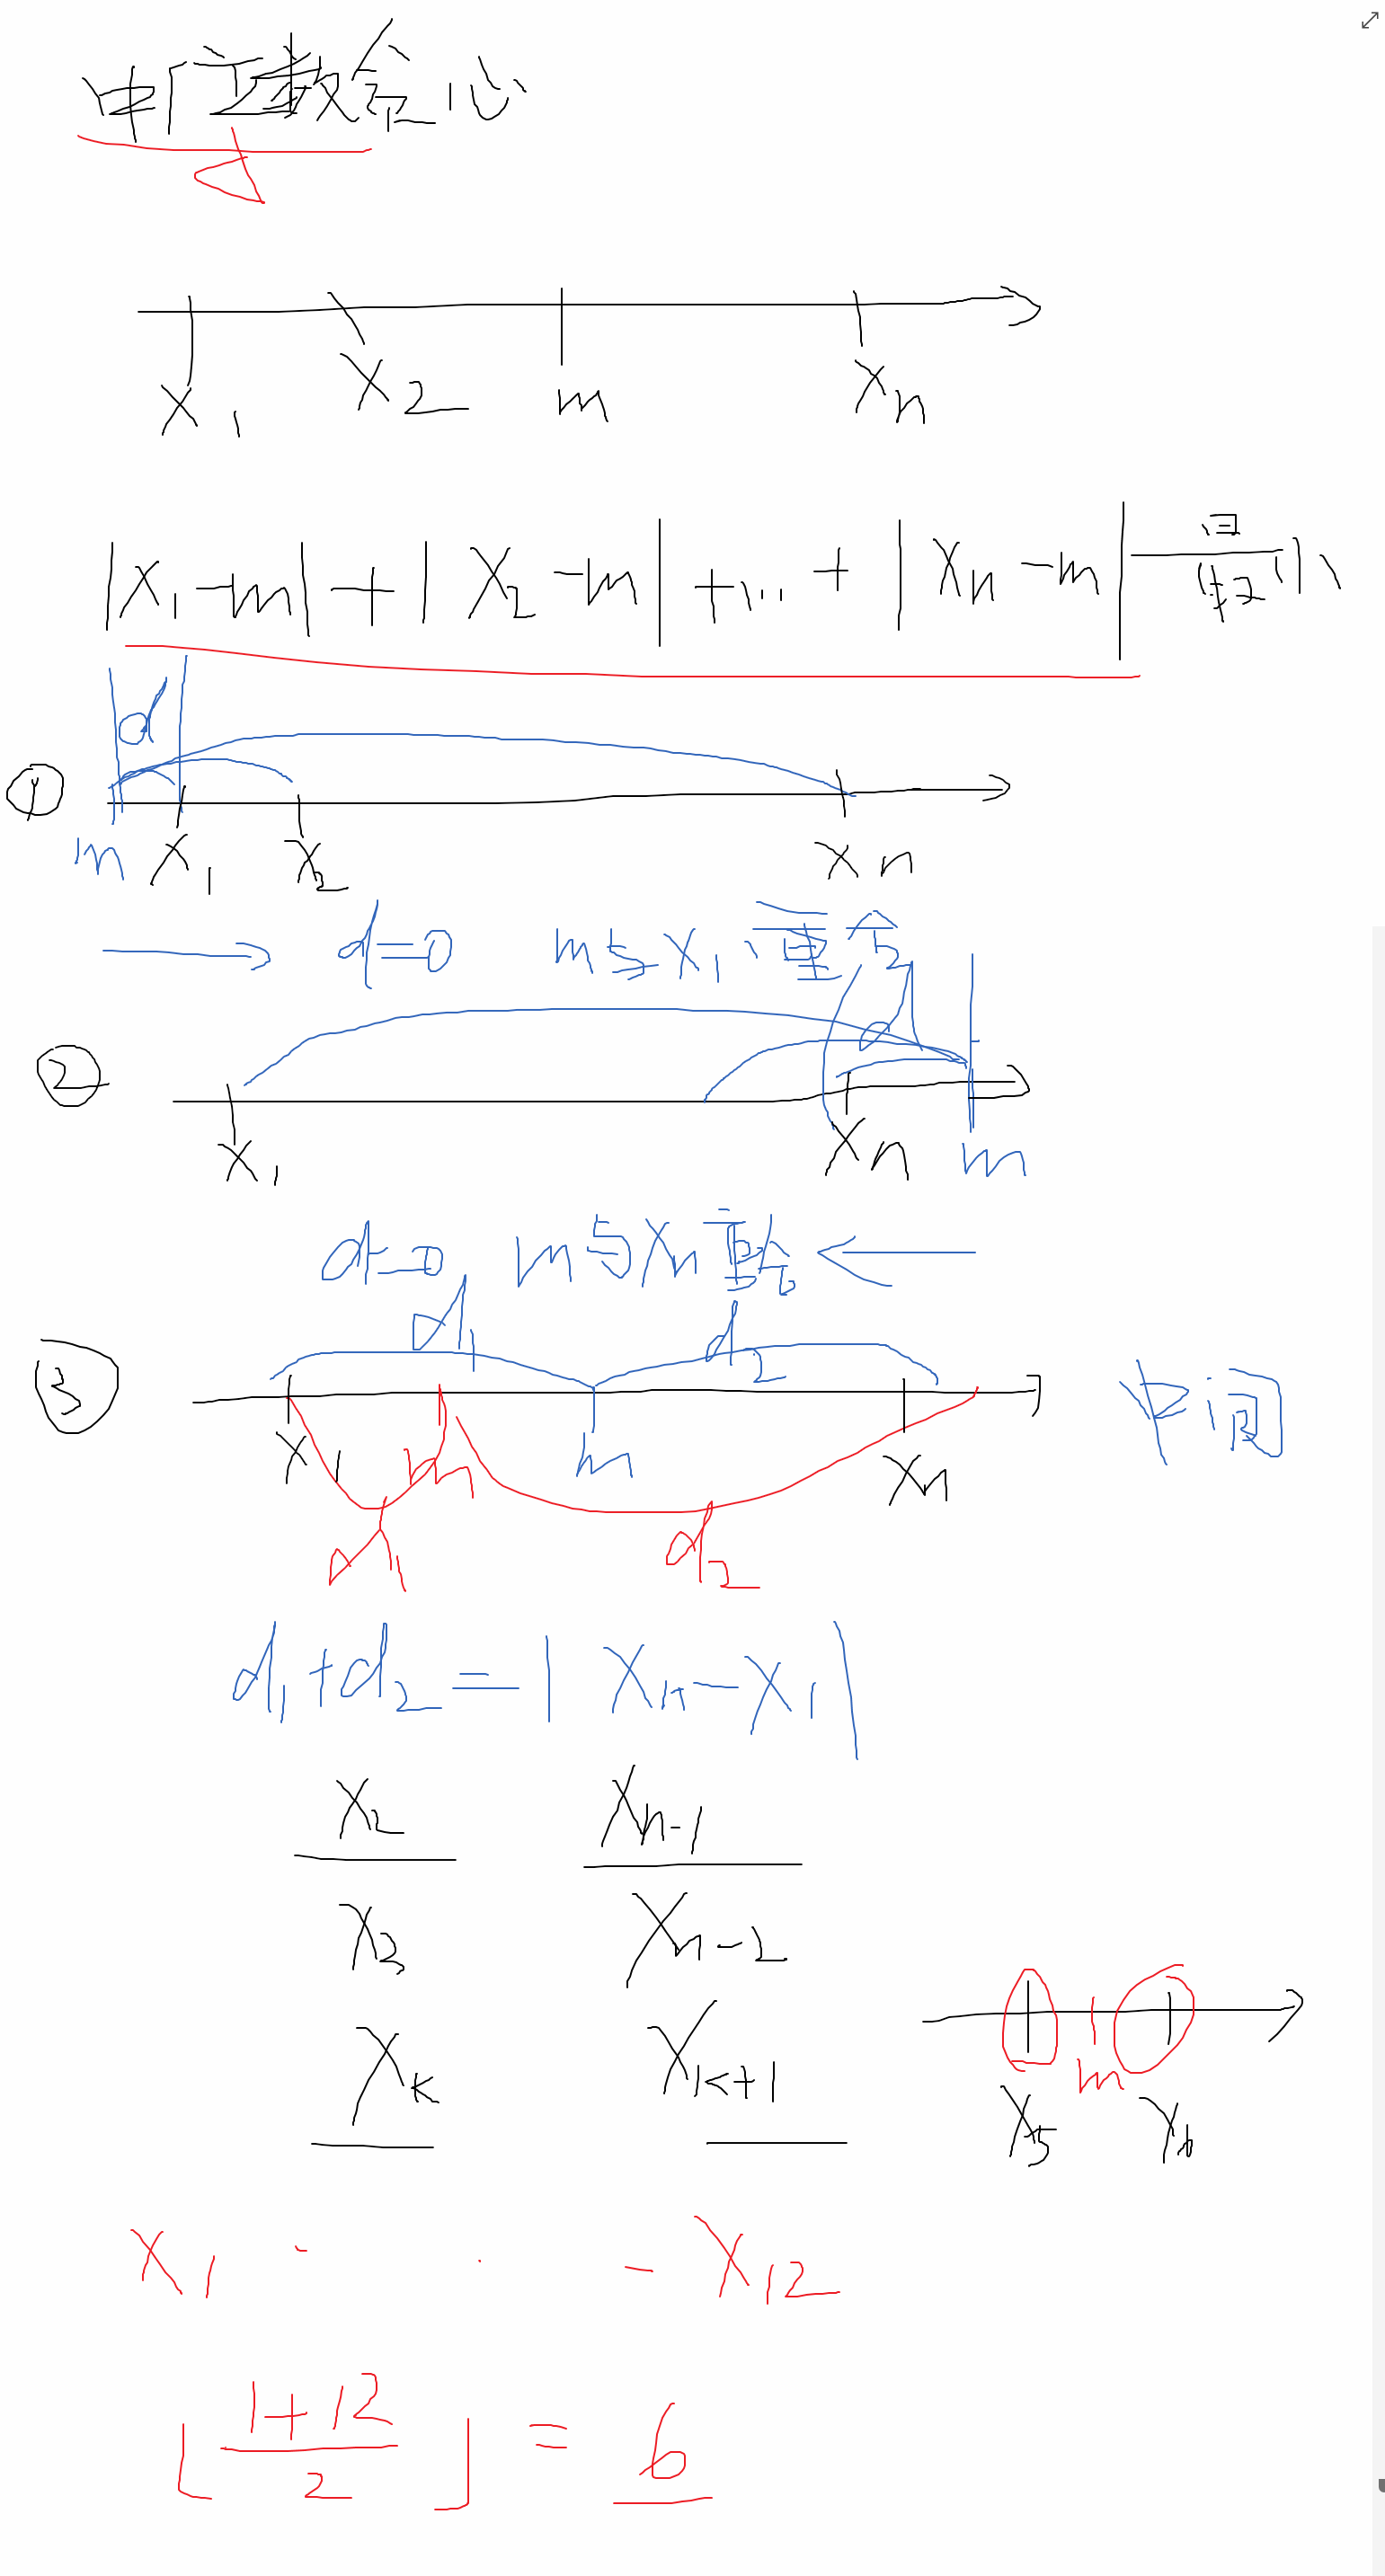 中位数贪心
x1 x2 m xn
|x1-m|+|x2-m|+...+|xn-m|
d
①
m x1 x2 xn
d=0 m与x1重合
d
②
x1 xn m
d=0 m与xn重合
d1 d2
③
中间
x1 m m xn
d1 d2
d1+d2=|xn-x1|
x2 xn-1
x3 xn-2
xk xk+1
m
x5 x6
x1 · · - x12
⌊(1+12)/2⌋=6